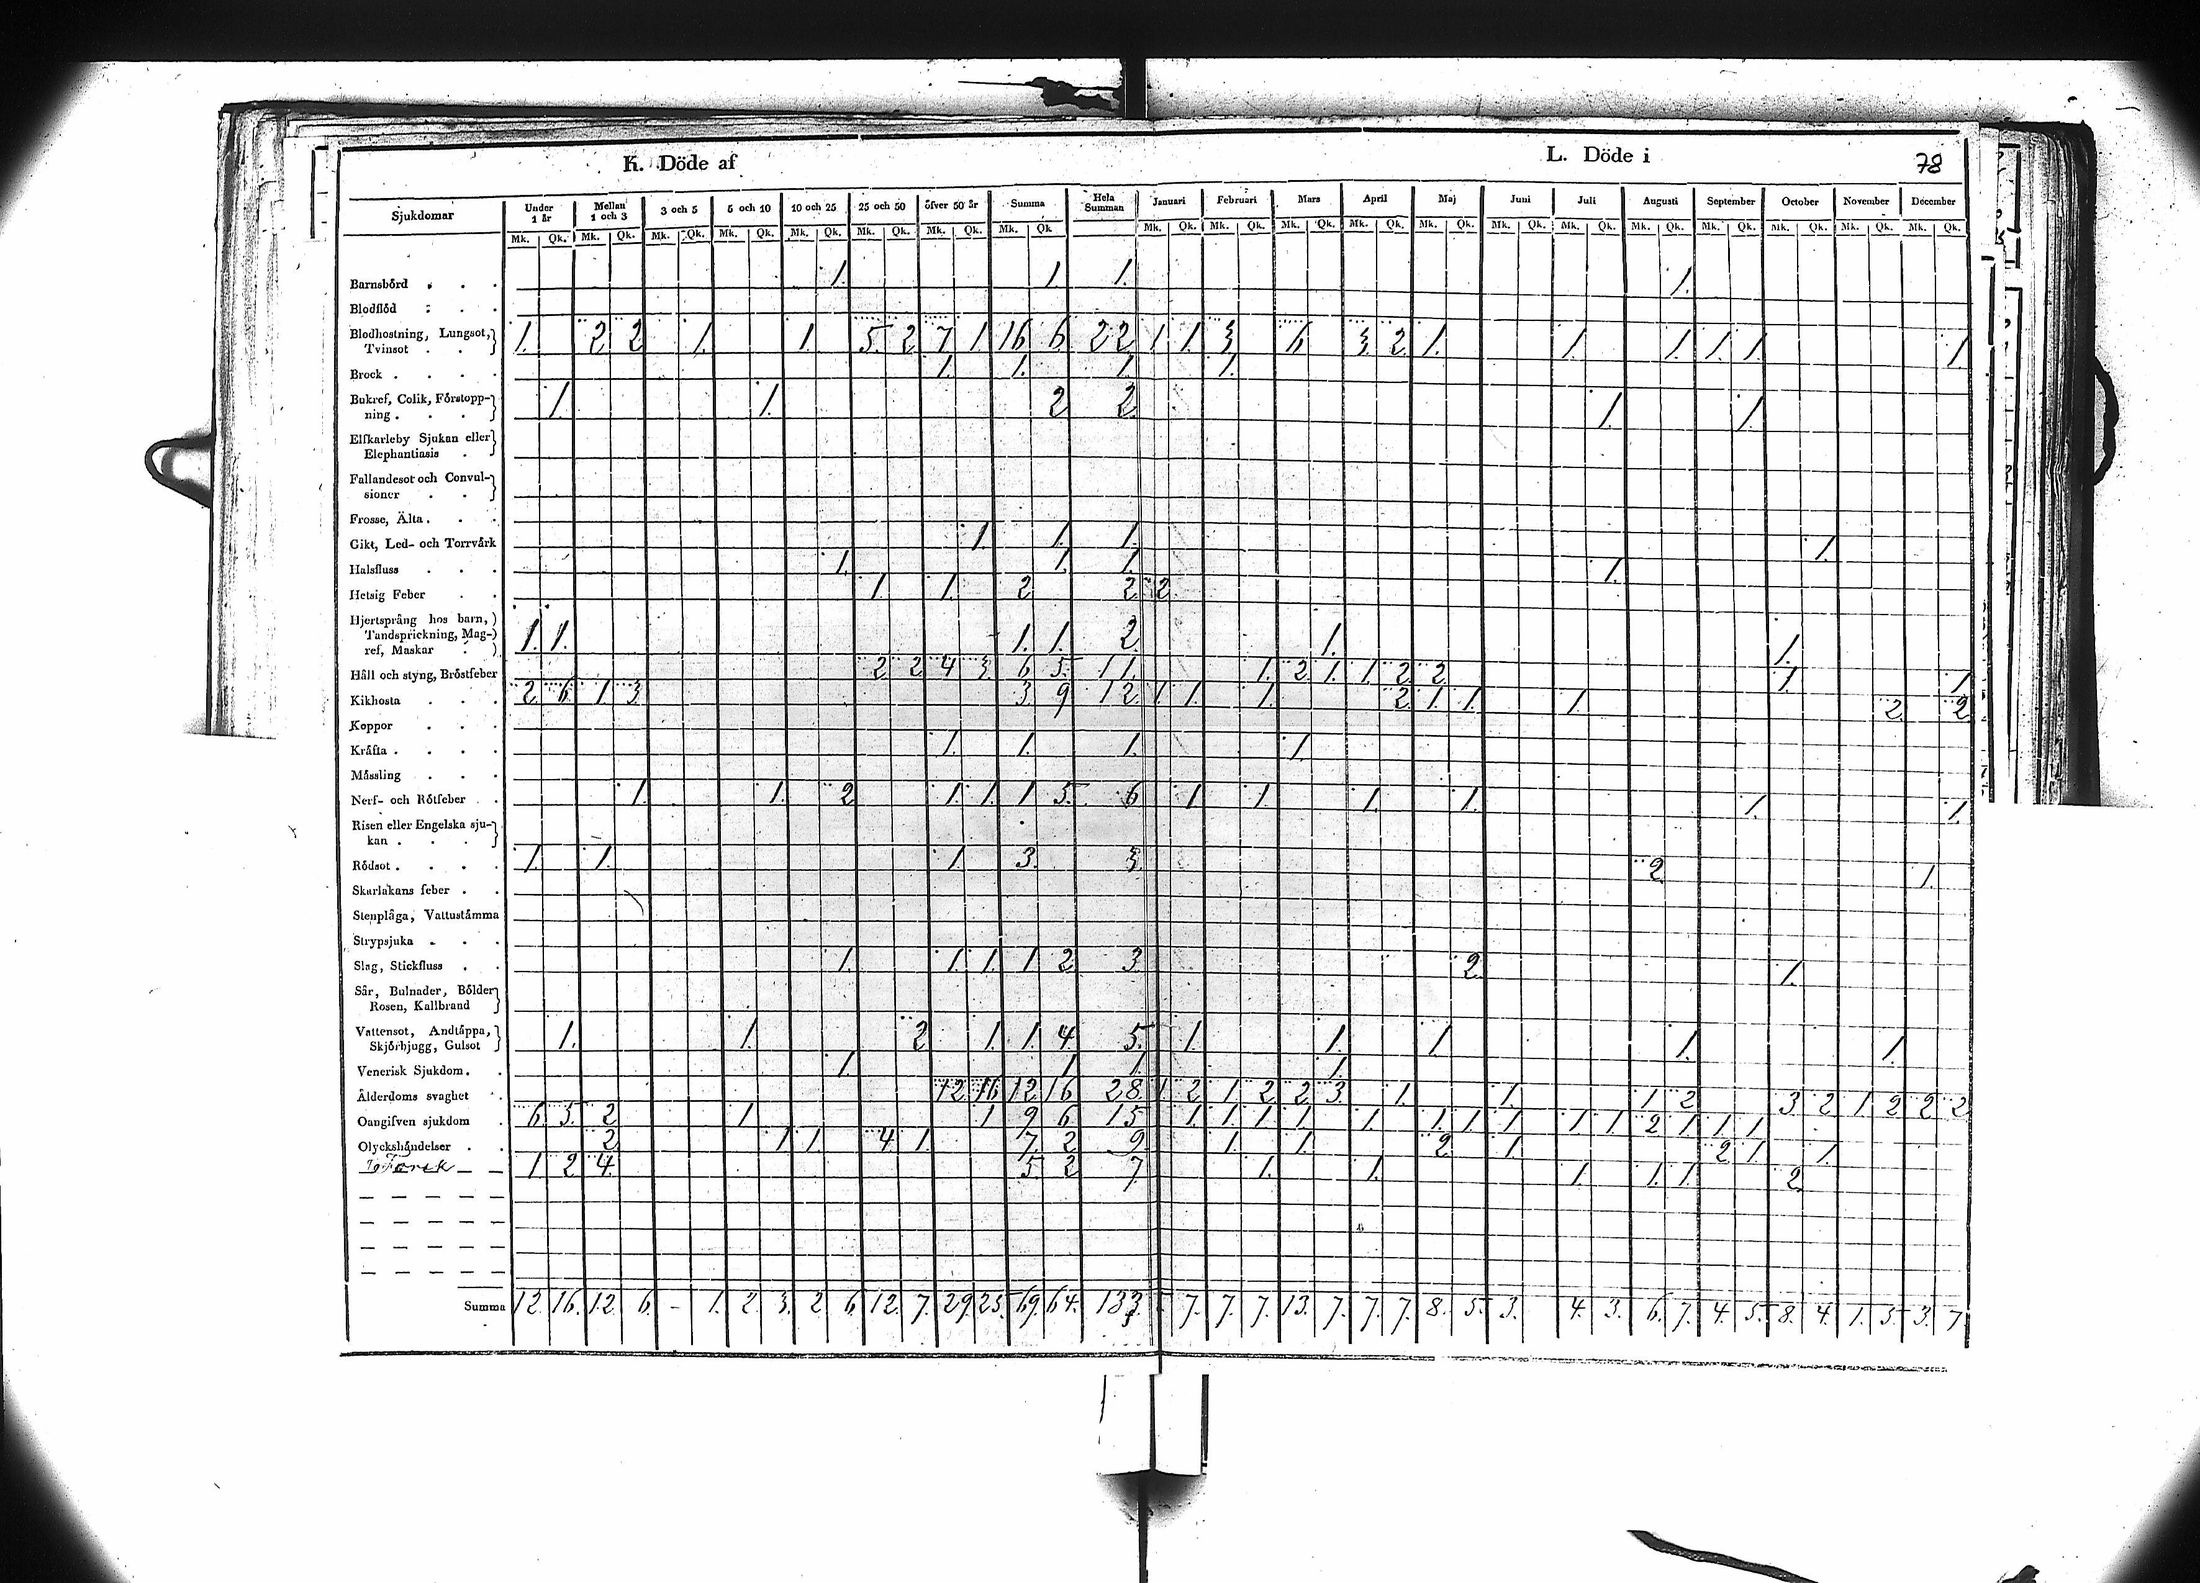 K. Döde af
L. Döde i
78
Sjukdomar
Under 1 år
Mellan 1 och 3
3 och 5
5 och 10
10 och 25
25 och 50
öfver 50 år
Summa
Hela Summan
Januari
Februari
Mars
April
Maj
Juni
Juli
Augusti
September
October
November
December
Mk. Qk. Mk. Qk. Mk. Qk. Mk. Qk. Mk. Qk. Mk. Qk. Mk. Qk. Mk. Qk Mk. Qk. Mk. Qk. Mk. Qk. Mk. Qk. Mk. Qk. Mk. Qk. Mk. Qk. Mk. Qk. Mk. Qk. Mk. Qk. Mk. Qk. Mk. Qk.
Barnsbörd . . . 1. 1 1. 1.
Blodflöd : . .
Blodhostning, Lungsot,
Tvinsot . . 1. 2 2 1. 1. 5. 2 7 1 16 6. 22 1 1. 3. 6. 3. 2 1. 1. 1. 1. 1. 1.
Brock . . . . 1. 1. 1 1.
Bukref, Colik, Förstopp-
ning . . . 1. 1. 2 2. 1. 1.
Elfkarleby Sjukan eller
Elephantiasis .
Fallandesot och Convul-
sioner . .
Frosse, Älta . . .
Gikt, Led- och Torrvärk 1. 1. 1. 1.
Halsfluss . . . 1. 1. 1. 1.
Hetsig Feber . . 1. 1. 2 2 2
Hjertsprång hos barn,
Tandsprickning, Mag-
ref, Maskar . 1. 1. 1. 1. 2. 1. 1.
Håll och styng, Bröstfeber 2 2 4 3 6 5. 11. 1. 2 1. 1. 2 2 1. 1.
Kikhosta . . . 2 6. 1. 3. 3. 9 12 1 1. 1. 2. 1. 1. 1. 2. 2.
Koppor . . .
Kräfta . . . . 1. 1. 1. 1.
Mässling . . .
Nerf- och Rötfeber . . 1. 1. 2 1. 1. 1 5. 6 1 1. 1. 1. 1. 1.
Risen eller Engelska sju-
kan . . .
Rödsot . . . . 1. 1. 1. 3. 3. 2. 1.
Skarlakans feber . .
Stenplåga, Vattustämma
Strypsjuka . . .
Slag, Stickfluss . . 1. 1. 1. 1 2 3. 2. 1.
Sår, Bulnader, Bölder
Rosen, Kallbrand
Vattensot, Andtäppa,
Skjörbjugg, Gulsot 1. 1. 2 1. 1. 4 5. 1. 1. 1. 1. 1.
Venerisk Sjukdom . . 1. 1 1. 1.
Ålderdoms svaghet . 12 16 12 16 28 1 2 1. 2 2 3. 1. 1. 1. 2 3 2 1 2 2 2
Oangifven sjukdom . 6 5. 2 1 1 9 6 15 1. 1. 1. 1 1. 1. 1. 1 1. 1. 2 1 1. 1.
Olyckshändelser . . 2 1 1. 4 1. 7. 2 9. 1. 1. 2 1. 2 1. 1.
1. 2 4. 5. 2 7. 1. 1. 1. 1. 1. 2.
Summa 12. 16. 12 6. - 1. 2. 3. 2 6. 12. 7. 29. 25. 69. 64. 133. 5. 7. 7. 7. 13. 7. 7. 7. 8. 5. 3. 4. 3. 6. 7. 4. 5. 8. 4. 1. 3. 3. 7.